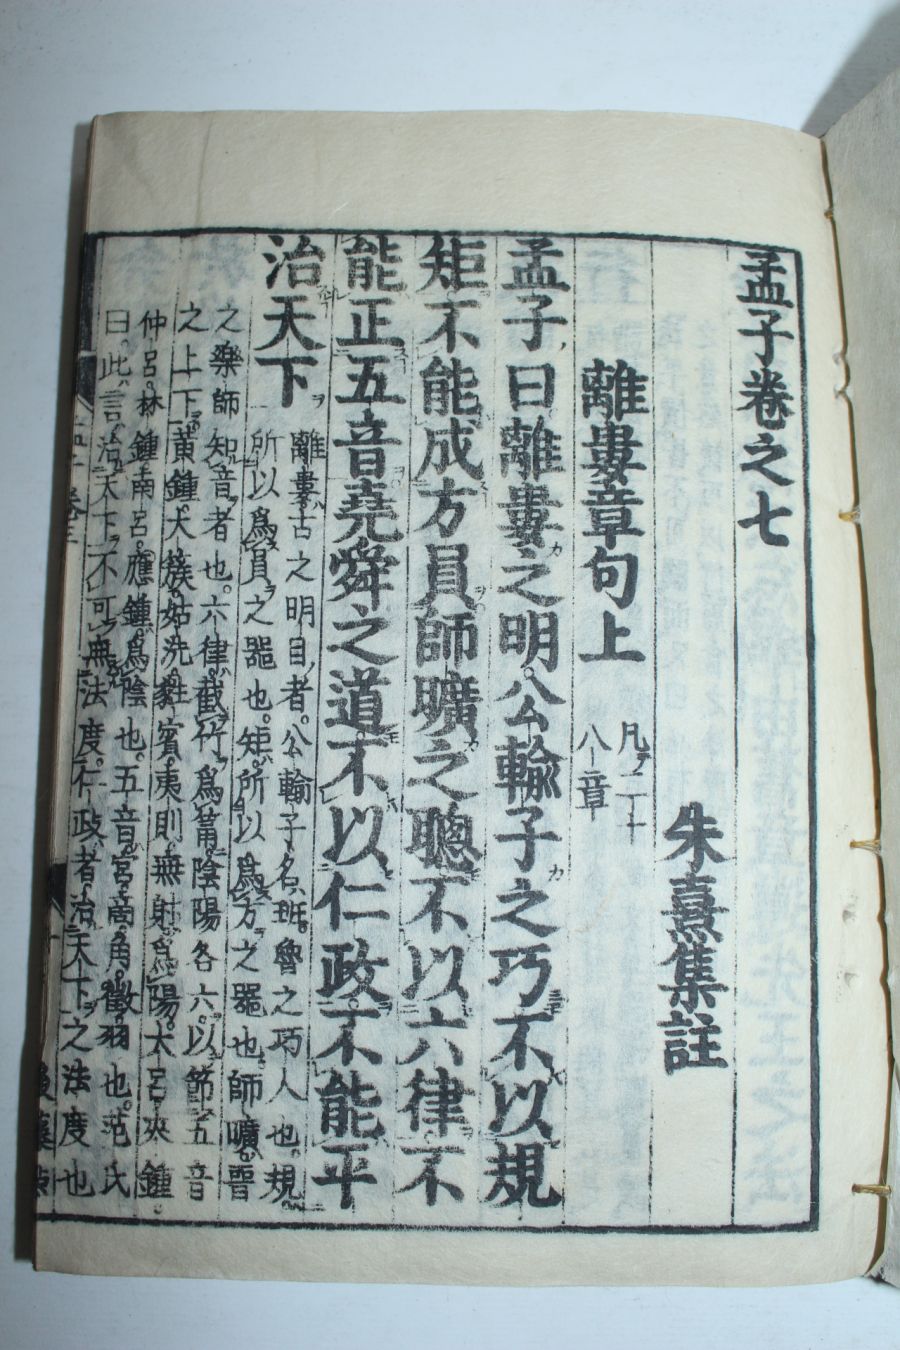 孟子卷之七
朱熹集註
離婁章句上
凡二十
八章
孟子曰離婁之明公輸子之巧不以規
矩不能成方員師曠之聰不以六律不
能正五音堯舜之道不以仁政不能平
治天下
離婁古之明目者公輸子名班魯之巧人也規
所以爲員之器也矩所以爲方之器也師曠晉
之樂師知音者也六律截竹爲筩陰陽各六以節五音
之上下黃鍾大簇姑洗蕤賓夷則無射爲陽大呂夾鍾
仲呂林鍾南呂應鍾爲陰也五音宮商角徵羽也范氏
曰此言治天下不可無法度仁政者治天下之法度也